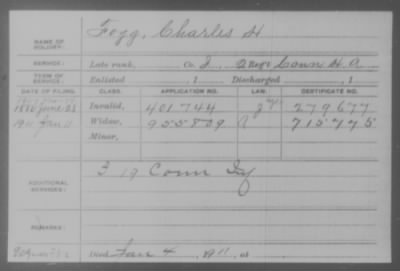 NAME OF SOLDIER: Fogg, Charles H
SERVICE: Late rank, Co. I, 2 Reg't Conn H. A
TERM OF SERVICE: Enlisted , 1 Discharged , 1
DATE OF FILING. CLASS. APPLICATION NO. LAW. CERTIFICATE NO.
Invalid, 401744 279677
1911 Jan 11 Widow, 955809 715775
Minor,
ADDITIONAL SERVICES: I 19 Conn Inf
REMARKS:
Died Jan 4, 1911, at